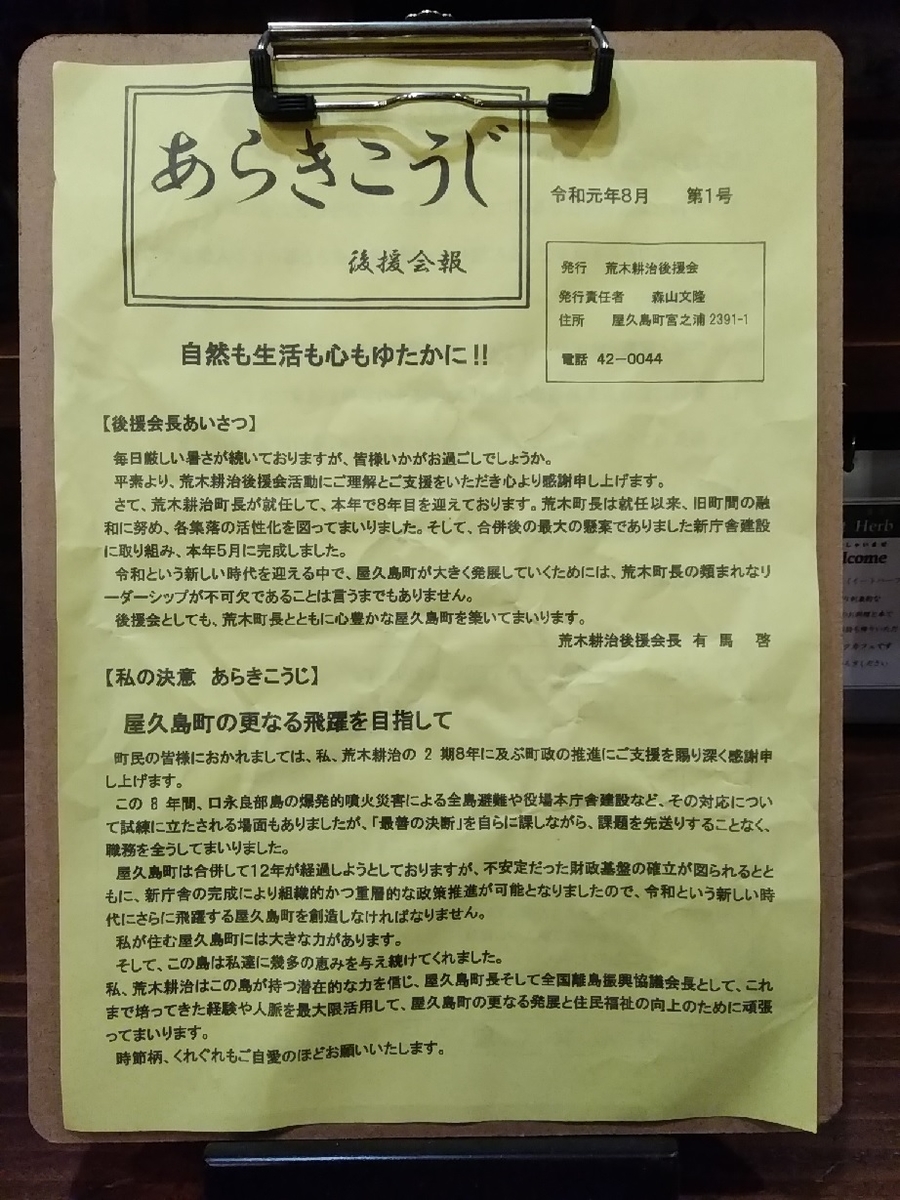 あらきこうじ
後援会報
令和元年8月　第1号
発行　荒木耕治後援会
発行責任者　森山文隆
住所　屋久島町宮之浦2391-1
電話　42－0044
自然も生活も心もゆたかに!!
【後援会長あいさつ】
毎日厳しい暑さが続いておりますが、皆様いかがお過ごしでしょうか。
平素より、荒木耕治後援会活動にご理解とご支援をいただき心より感謝申し上げます。
さて、荒木耕治町長が就任して、本年で8年目を迎えております。荒木町長は就任以来、旧町間の融
和に努め、各集落の活性化を図ってまいりました。そして、合併後の最大の懸案でありました新庁舎建設
に取り組み、本年5月に完成しました。
令和という新しい時代を迎える中で、屋久島町が大きく発展していくためには、荒木町長の類まれなリ
ーダーシップが不可欠であることは言うまでもありません。
後援会としても、荒木町長とともに心豊かな屋久島町を築いてまいります。
荒木耕治後援会長　有　馬　啓
【私の決意　あらきこうじ】
屋久島町の更なる飛躍を目指して
町民の皆様におかれましては、私、荒木耕治の 2 期8年に及ぶ町政の推進にご支援を賜り深く感謝申
し上げます。
この 8 年間、口永良部島の爆発的噴火災害による全島避難や役場本庁舎建設など、その対応につい
て試練に立たされる場面もありましたが、「最善の決断」を自らに課しながら、課題を先送りすることなく、
職務を全うしてまいりました。
屋久島町は合併して12年が経過しようとしておりますが、不安定だった財政基盤の確立が図られるとと
もに、新庁舎の完成により組織的かつ重層的な政策推進が可能となりましたので、令和という新しい時
代にさらに飛躍する屋久島町を創造しなければなりません。
私が住む屋久島町には大きな力があります。
そして、この島は私達に幾多の恵みを与え続けてくれました。
私、荒木耕治はこの島が持つ潜在的な力を信じ、屋久島町長そして全国離島振興協議会長として、これ
まで培ってきた経験や人脈を最大限活用して、屋久島町の更なる発展と住民福祉の向上のために頑張
ってまいります。
時節柄、くれぐれもご自愛のほどお願いいたします。
Herb